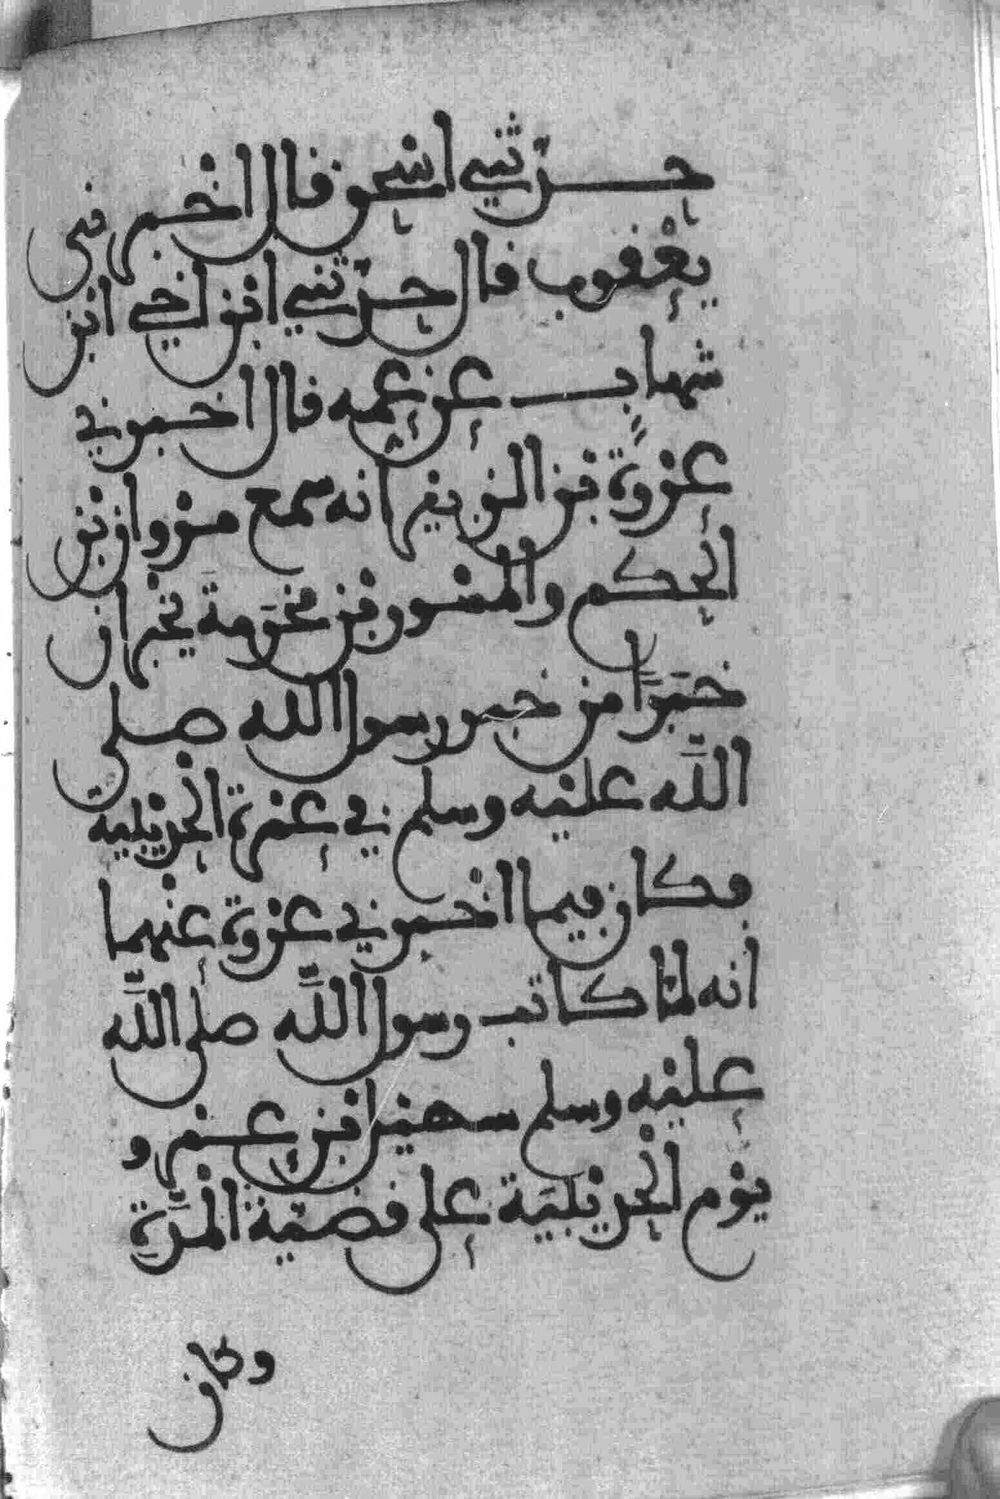 حدثني اسحق قال اخبرني
يعقوب قال حدثني ابن اخي ابن
شهاب عن عمه قال اخبرني
عروة بن الزبير انه سمع مروان بن
الحكم والمسور بن مخرمة يخبران
خبرًا من خبر رسول الله صلى
اللَّه عليه وسلم في عمرة الحديبية
فكان فيما اخبرني عروة عنهما
انه لما كاتب رسول اللَّه صلى اللَّه
عليه وسلم سهيل بن عمرو
يوم الحديبية على قضية المدَّةِ
وكان